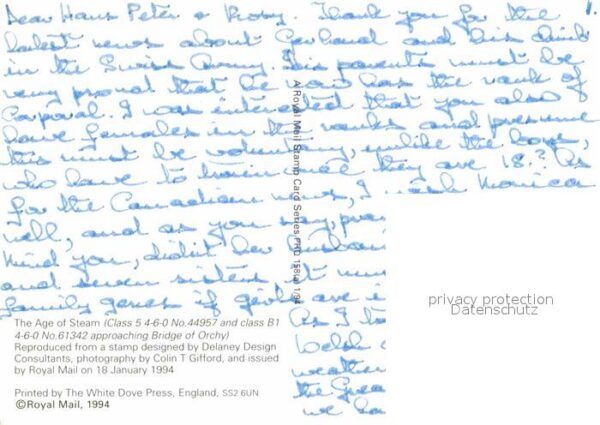 1.
Dear Hans Peter & Rosy. Thank you for the
latest news about Gerhard and his time
in the Swiss Army. His parents must be
very proud that he now has the rank of
Corporal. I was interested that you also
have females in the ranks and presume
this must be voluntary, unlike the boys,
who have to train once they are 18? As
for the Canadian news, I Monica
well, and as you say,
Mind you, didn't her husband
and seven sisters, it
family genes of girls are
As I
Welsh
weather
the Grea
we ha
A Royal Mail Stamp Card Series PHQ 158 1/94
The Age of Steam (Class 5 4-6-0 No.44957 and class B1
4-6-0 No.61342 approaching Bridge of Orchy)
Reproduced from a stamp designed by Delaney Design
Consultants, photography by Colin T Gifford, and issued
by Royal Mail on 18 January 1994
Printed by The White Dove Press, England, SS2 6UN
©Royal Mail, 1994
privacy protection
Datenschutz